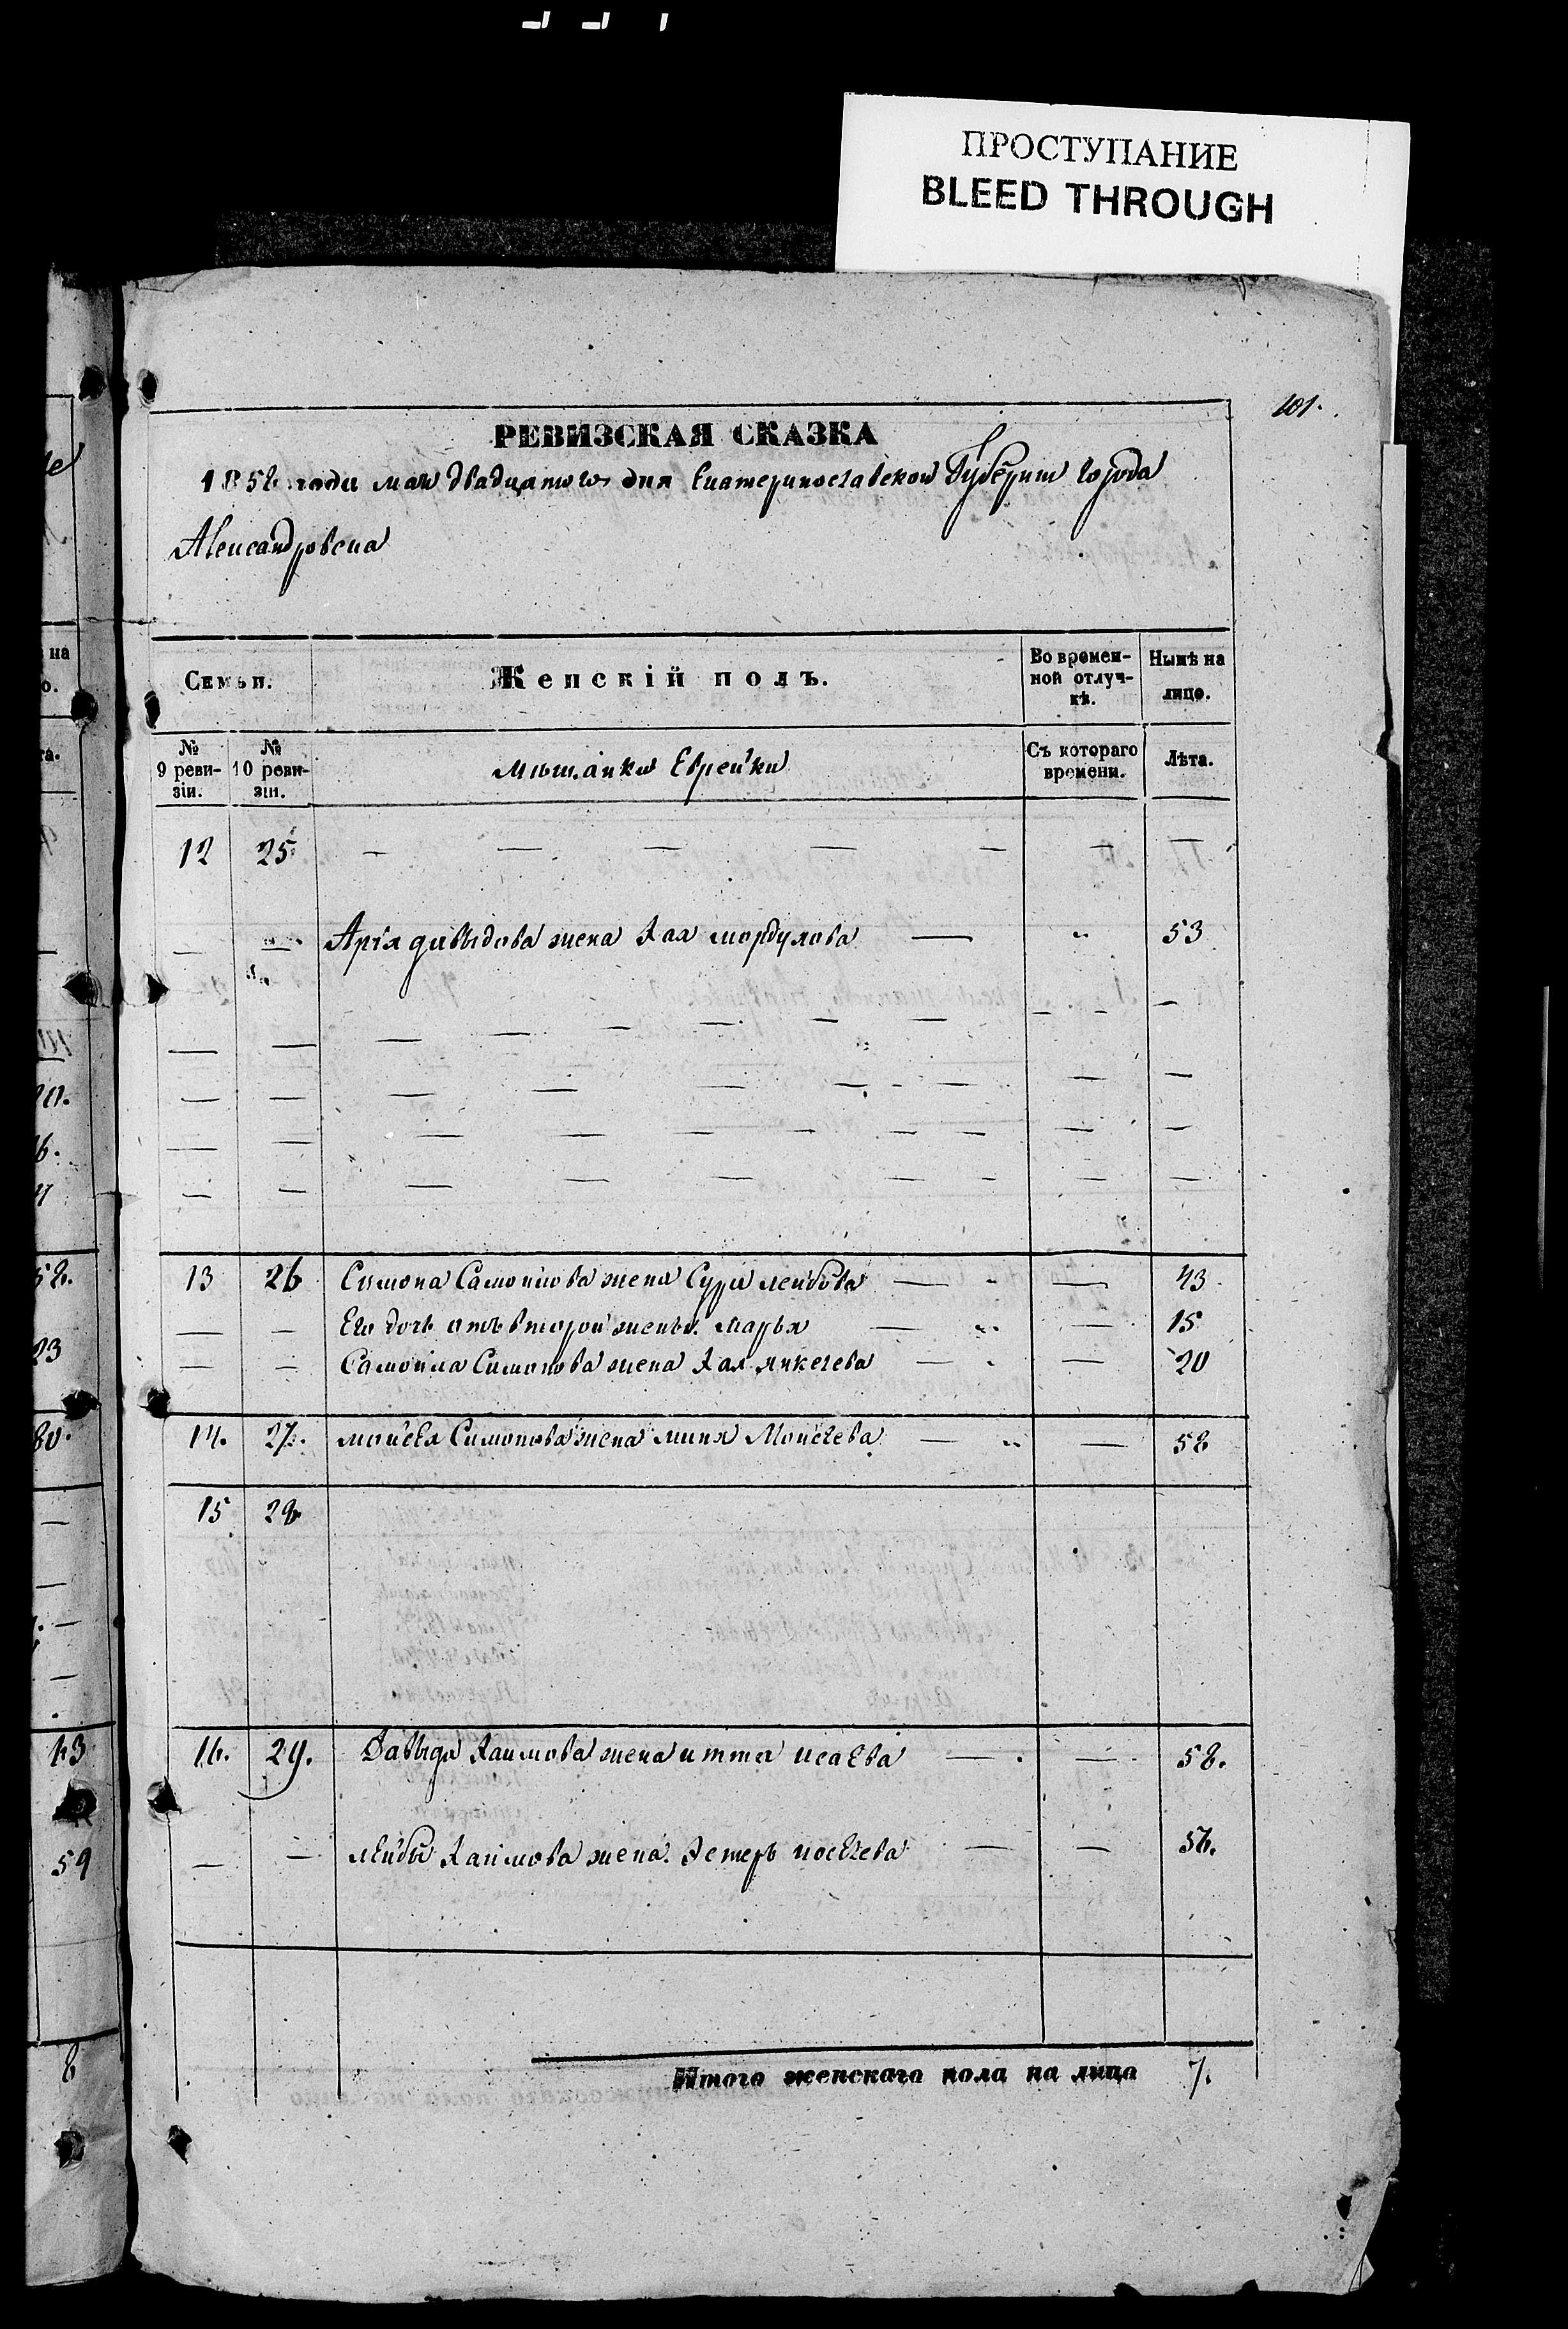 ПРОСТУПАНИЕ
BLEED THROUGH
101.
РЕВИЗСКАЯ СКАЗКА
1858 года мая двадцатого дня Екатеринославской Губернии города
Александровска
Семьи.
Женскій полъ.
Во времен-
ной отлуч-
кѣ.
Нынѣ на
лицо.
№
9 реви-
зіи.
№
10 реви-
зіи.
мѣщанки Еврейки
Съ котораго
времени.
Лѣта.
12 25 — — — — — — —
— — Арія давыдова жена Хая мордухова — „ 53
13 26 Симона Самойлова жена Сура лейбова — — 43
— — Его дочь отъ второй жены марья — — 15
— — Самойла Симонова жена Хая янкелева — — 20
14. 27. мойсея Симонова жена миня Мойсеева — — 58
15 28
16. 29. Давыда Хаимова жена итта исаева — — 58.
— — лейбы Хаимова жена Эстеръ иосева — — 56.
Итого женскаго пола на лицо 7.